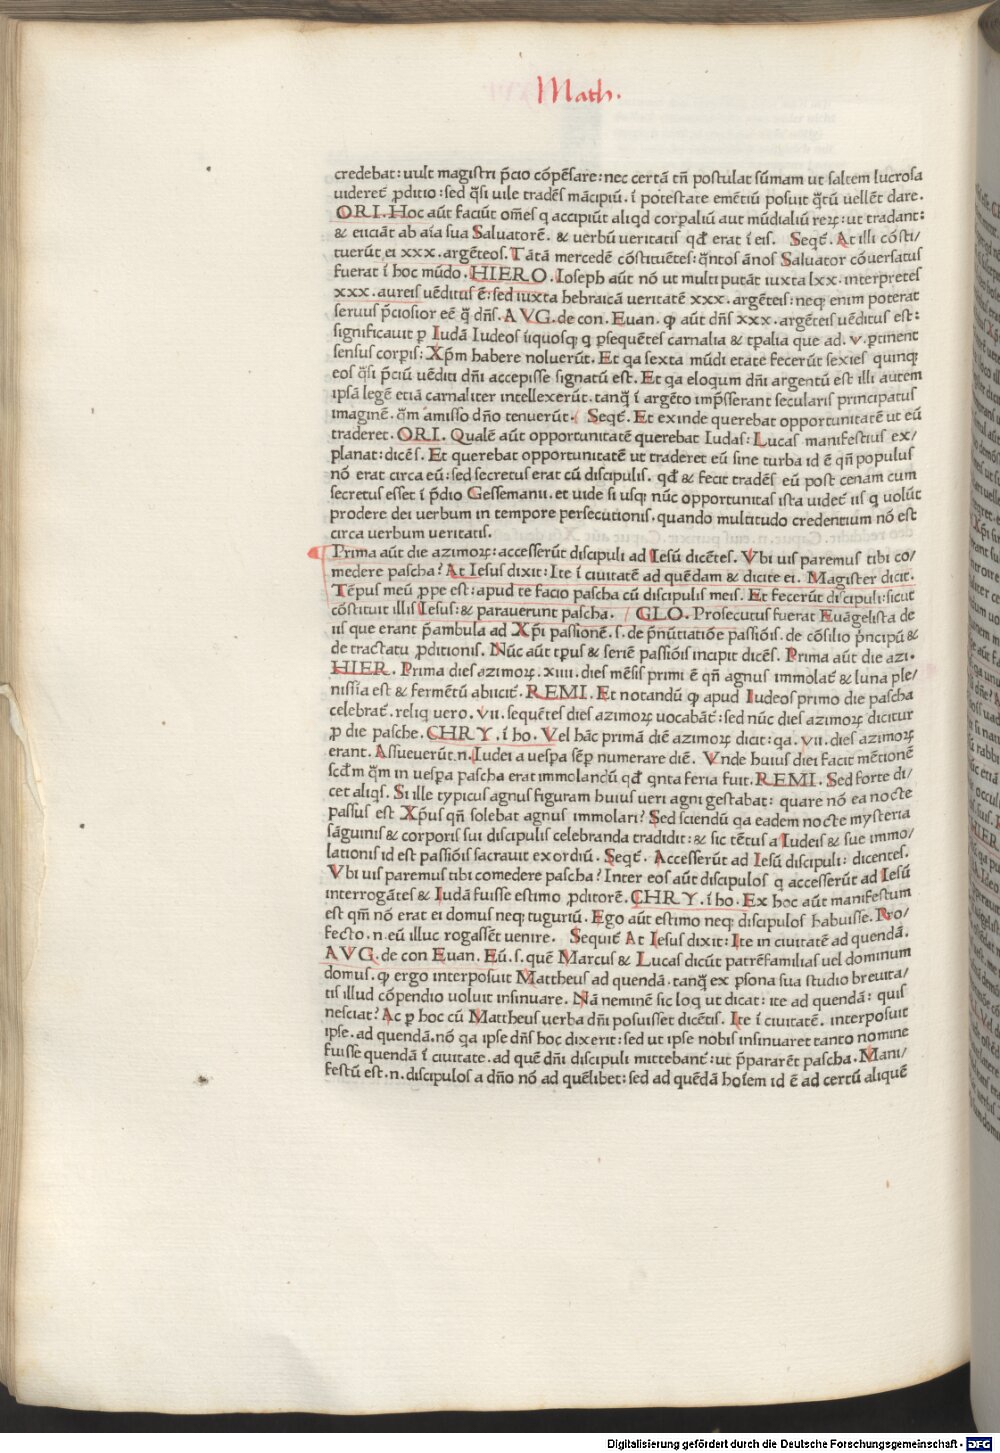 Math.
credebat: uult magistri p̄cio cōpēsare: nec certā tn̄ postulat sūmam ut saltem lucrosa
uideret̄ ꝓditio: sed q̄si uile tradēs mācipiū. ī potestate emētiū posuit q̄tū uellēt dare.
ORI. Hoc aūt faciūt om̄es q accipiūt aliqd corꝑaliū aut mūdialiū reꝝ: ut tradant:
& eiiciāt ab aīa sua Saluatorē. & uerbū ueritatis qđ erat ī eis. Seqt̄. At illi cōsti/
tuerūt ei xxx. argēteos. Tātā mercedē cōstituētes: q̄ntos ānos Saluator cōuersatus
fuerat ī hoc mūdo. HIERO. Ioseph aūt nō ut multi putāt iuxta lxx. interpretes
xxx. aureis uēditus ē: sed iuxta hebraicā ueritatē xxx. argēteis: neqꝫ enim poterat
seruus p̄ciosior eē q̄ dn̄s. AVG. de con. Euan. ꝙ aūt dn̄s xxx. argēteis uēditus est:
significauit ꝑ Iudā Iudeos iiquosqꝫ q ꝑsequētes carnalia & tꝑalia que ad. v. ꝑtinent
sensus corpis: Xp̄m habere noluerūt. Et qa sexta mūdi etate fecerūt sexies quinqꝫ
eos q̄si p̄ciū uēditi dn̄i accepisse signatū est. Et qa eloqum dn̄i argentū est illi autem
ipsā legē etiā carnaliter intellexerūt. tanq̄ ī argēto imp̄sserant secularis principatus
imaginē. q̄m amisso dn̄o tenuerūt. Seqt̄. Et exinde querebat opportunitatē ut eū
traderet. ORI. Qualē aūt opportunitatē querebat Iudas: Lucas manifestius ex/
planat: dicēs. Et querebat opportunitatē ut traderet eū sine turba id ē qn̄ populus
nō erat circa eū: sed secretus erat cū discipulis. qđ & fecit tradēs eū post cenam cum
secretus esset ī p̄dio Gessemanii. et uide si usqꝫ nūc opportunitas ista uidet̄ iis q uolūt
prodere dei uerbum in tempore persecutionis. quando multitudo credentium nō est
circa uerbum ueritatis.
Prima aūt die azimoꝝ: accesserūt discipuli ad Iesū dicētes. Vbi uis paremus tibi co/
medere pascha? At Iesus dixit: Ite ī ciuitatē ad quēdam & dicite ei. Magister dicit.
Tēpus meū ꝓpe est: apud te facio pascha cū discipulis meis. Et fecerūt discipuli: sicut
cōstituit illis Iesus: & parauerunt pascha. GLO. Prosecutus fuerat Euāgelista de
iis que erant p̄ambula ad Xp̄i passionē. s. de p̄nūtiatiōe passiōis. de cōsilio p̄ncipū &
de tractatu ꝓditionis. Nūc aūt tꝑus & seriē passiōis incipit dicēs. Prima aūt die azi.
HIER. Prima dies azimoꝝ. xiiii. dies mēsis primi ē qn̄ agnus immolat̄ & luna ple/
nissīa est & fermētū abiicit̄. REMI. Et notandū ꝙ apud Iudeos primo die pascha
celebrat̄. reliq uero. vii. sequētes dies azimoꝝ uocabāt̄: sed nūc dies azimoꝝ dicitur
ꝓ die pasche. CHRY. ī ho. Vel hāc primā diē azimoꝝ dicit: qa. vii. dies azimoꝝ
erant. Assueuerūt. n. Iudei a uespa sēꝑ numerare diē. Vnde huius diei facit mētionē
scđm q̄m in uespa pascha erat immolandū qđ qnta feria fuit. REMI. Sed forte di/
cet aliqs. Si ille typicus agnus figuram huius ueri agni gestabat: quare nō ea nocte
passus est Xp̄us qn̄ solebat agnus immolari? Sed sciendū qa eadem nocte mysteria
sāguinis & corporis sui discipulis celebranda tradidit: & sic tētus a Iudeis & sue immo/
lationis id est passiōis sacrauit exordiū. Seqt̄. Accesserūt ad Iesū discipuli: dicentes.
Vbi uis paremus tibi comedere pascha? Inter eos aūt discipulos q accesserūt ad Iesū
interrogātes & Iudā fuisse estimo ꝓditorē. CHRY. ī ho. Ex hoc aūt manifestum
est qm̄ nō erat ei domus neqꝫ tuguriū. Ego aūt estimo neqꝫ discipulos habuisse. Pro/
fecto. n. eū illuc rogassēt uenire. Sequit̄ At Iesus dixit: Ite in ciuitatē ad quendā.
AVG. de con Euan. Eū. s. quē Marcus & Lucas dicūt patrēfamilias uel dominum
domus. ꝙ ergo interposuit Mattheus ad quendā. tanq̄ ex ꝑsona sua studio breuita/
tis illud cōpendio uoluit insinuare. Nā neminē sic loq ut dicat: ite ad quendā: quis
nesciat? Ac ꝑ hoc cū Mattheus uerba dn̄i posuisset dicētis. Ite ī ciuitatē. interposuit
ipse. ad quendā. nō qa ipse dn̄s hoc dixerit: sed ut ipse nobis insinuaret tanto nomine
fuisse quendā ī ciuitate. ad quē dn̄i discipuli mittebant̄: ut p̄pararēt pascha. Mani/
festū est. n. discipulos a dn̄o nō ad quēlibet: sed ad quēdā hoīem id ē ad certū aliquē
Digitalisierung gefördert durch die Deutsche Forschungsgemeinschaft - DFG